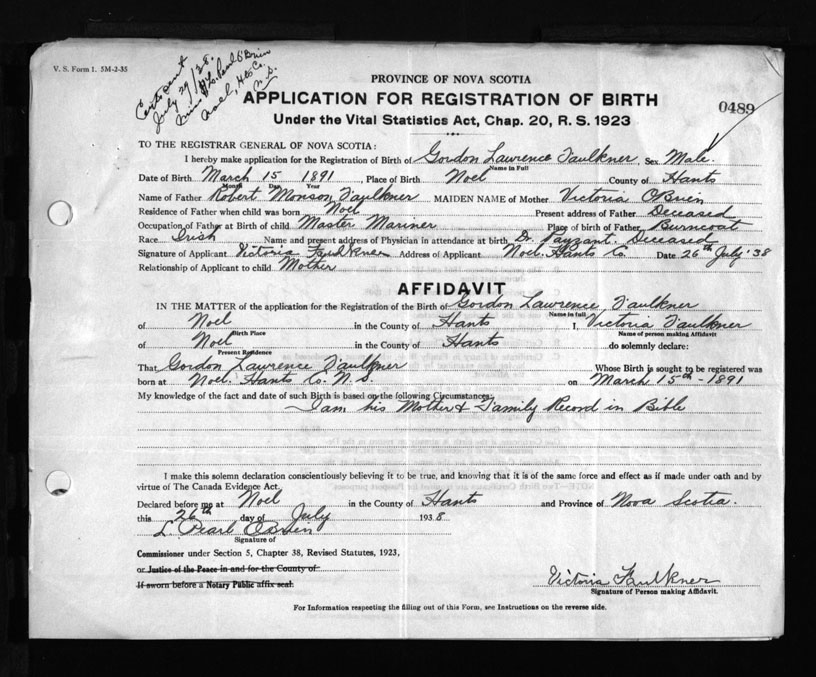 V. S. Form 1. 5M-2-35
Cert sent
July 29/38.
Miss L. Pearl O'Brien
Noel, Hts Co.
N.S.
PROVINCE OF NOVA SCOTIA
APPLICATION FOR REGISTRATION OF BIRTH
0489
Under the Vital Statistics Act, Chap. 20, R. S. 1923
TO THE REGISTRAR GENERAL OF NOVA SCOTIA:
I hereby make application for the Registration of Birth of Gordon Lawrence Faulkner, Sex Male.
Name in Full
Date of Birth March 15 1891, Place of Birth Noel County of Hants
Month Day Year
Name of Father Robert Monson Faulkner MAIDEN NAME of Mother Victoria O'Brien
Residence of Father when child was born Noel Present address of Father Deceased
Occupation of Father at Birth of child Master Mariner Place of birth of Father Burncoat
Race Irish Name and present address of Physician in attendance at birth Dr. Payzant. Deceased
Signature of Applicant Victoria Faulkner Address of Applicant Noel. Hants Co. Date 26th July '38
Relationship of Applicant to child Mother
AFFIDAVIT
IN THE MATTER of the application for the Registration of the Birth of Gordon Lawrence Faulkner
Name in full
of Noel in the County of Hants I, Victoria Faulkner
Birth Place Name of person making Affidavit
of Noel in the County of Hants do solemnly declare:
Present Residence
That Gordon Lawrence Faulkner Whose Birth is sought to be registered was
born at Noel. Hants Co. N.S. on March 15th - 1891
My knowledge of the fact and date of such Birth is based on the following Circumstances:
I am his Mother & Family Record in Bible
I make this solemn declaration conscientiously believing it to be true, and knowing that it is of the same force and effect as if made under oath and by
virtue of The Canada Evidence Act.
Declared before me at Noel in the County of Hants and Province of Nova Scotia.
this 26th day of July 1938
L. Pearl O'Brien
Signature of
Commissioner under Section 5, Chapter 38, Revised Statutes, 1923,
or Justice of the Peace in and for the County of
If sworn before a Notary Public affix seal.
Victoria Faulkner
Signature of Person making Affidavit.
For Information respecting the filling out of this Form, see Instructions on the reverse side.